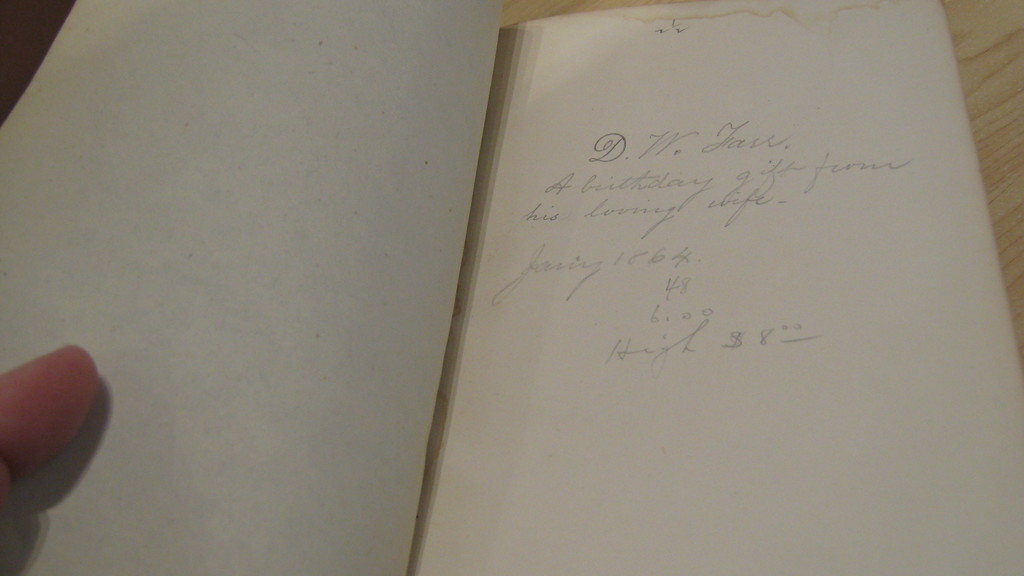 D. W. Farr.
A birthday gift from
his loving wife -
Jany 1864.
48
6.00
High $8.00